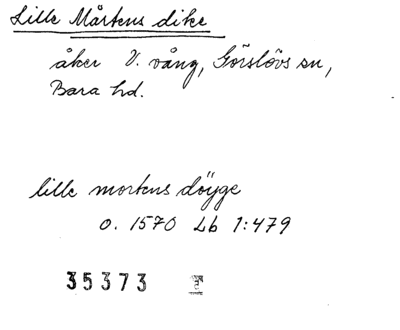 Lille Mårtens dike
åker V. vång, Görslövs sn,
Bara hd.
lille mortens döyge
o. 1570 Lb 1:479
35373